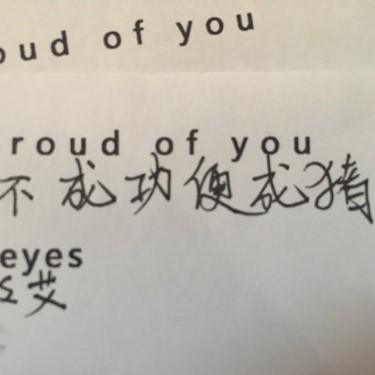 oud of you
roud of you
不成功便成猪
eyes
艾